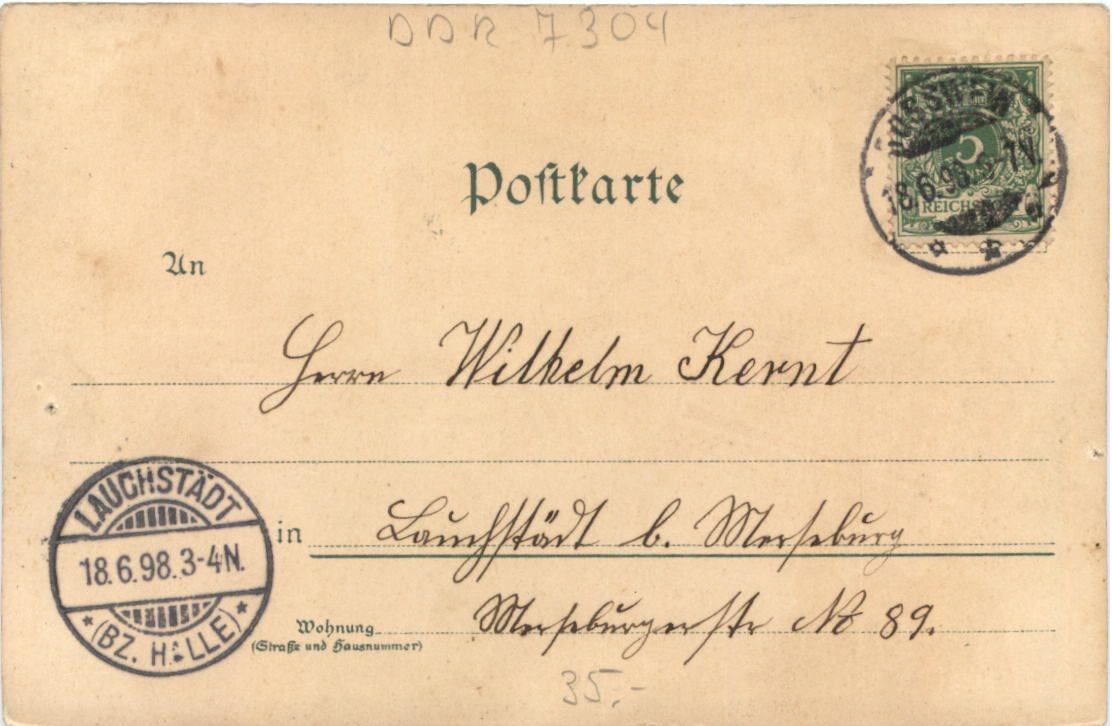 DDR 7304
ROSSWEIN
5
18.6.98.
REICHSPOST
Postkarte
An
Herrn Wilhelm Kernt
LAUCHSTÄDT
in Lauchstädt b. Merseburg
18.6.98.3-4N.
(BZ. HALLE)
Wohnung Merseburgerstr No 89.
(Straße und Hausnummer)
35.-